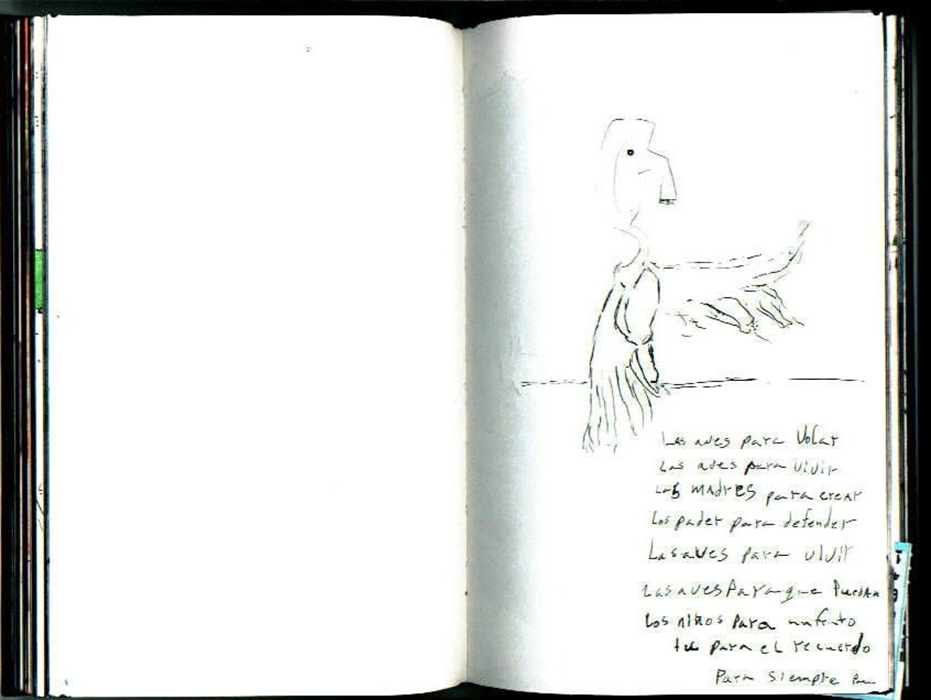 Las aves para Volar
Las aves para vivir
Las MADRES para crear
Los pader para defender
Las aves para vivir
Las aves Para que Puedan
Los niños Para un
tu para el recuerdo
Para siempre